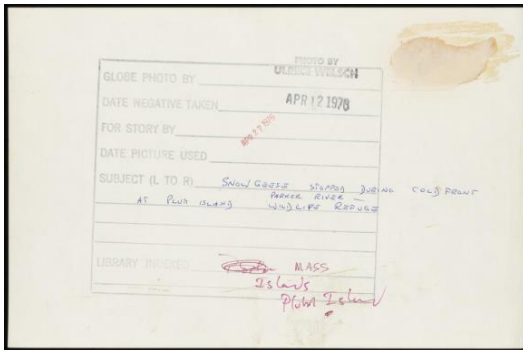 PHOTO BY
GLOBE PHOTO BY ULRIKE WELSCH
DATE NEGATIVE TAKEN APR 12 1978
FOR STORY BY
DATE PICTURE USED
SUBJECT (L TO R) SNOW GEESE STOPPED DURING COLD FRONT
AT PLUM ISLAND PARKER RIVER —
WILDLIFE REFUGE
LIBRARY INDEXED MASS
Islands
Plum Island